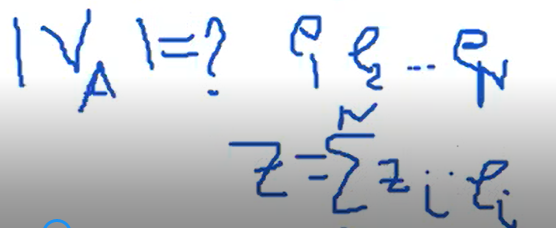 |V_A|=? e_1 e_2 ... e_N
z=∑^N z_i·e_i